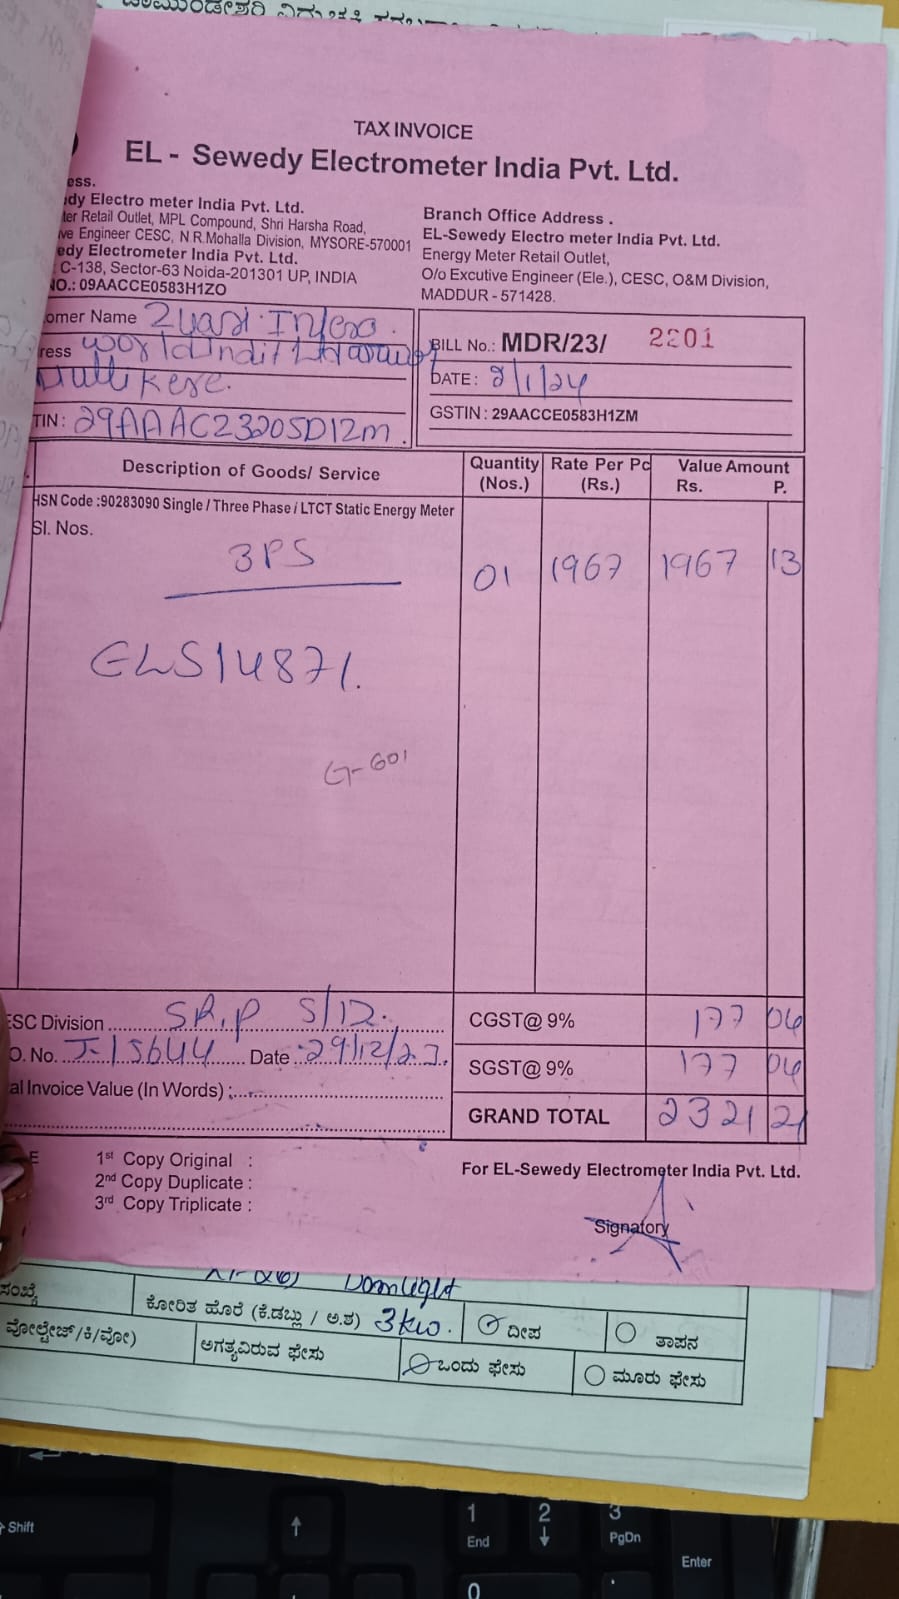 TAX INVOICE
EL - Sewedy Electrometer India Pvt. Ltd.
ess.
dy Electro meter India Pvt. Ltd.
ter Retail Outlet, MPL Compound, Shri Harsha Road,
ve Engineer CESC, N R.Mohalla Division, MYSORE-570001
edy Electrometer India Pvt. Ltd.
C-138, Sector-63 Noida-201301 UP, INDIA
NO.: 09AACCE0583H1ZO
Branch Office Address .
EL-Sewedy Electro meter India Pvt. Ltd.
Energy Meter Retail Outlet,
O/o Excutive Engineer (Ele.), CESC, O&M Division,
MADDUR - 571428.
omer Name Zuari Infra
ress World India Ltd
Mullikere.
TIN : 29AAACZ3205D1ZM.
BILL No.: MDR/23/ 2201
DATE : 2/1/24
GSTIN : 29AACCE0583H1ZM
Description of Goods/ Service Quantity (Nos.) Rate Per Pc (Rs.) Value Amount Rs. P.
HSN Code :90283090 Single / Three Phase / LTCT Static Energy Meter
Sl. Nos.
3PS 01 1967 1967 13
ELS14871.
G-601
ESC Division SR.P 5/12. CGST@ 9% 177 04
O. No. J-15644 Date : 29/12/23. SGST@ 9% 177 04
al Invoice Value (In Words) :
GRAND TOTAL 2321 21
E 1st Copy Original :
2nd Copy Duplicate :
3rd Copy Triplicate :
For EL-Sewedy Electrometer India Pvt. Ltd.
Signatory
ಸಂಖ್ಯೆ ಕೋರಿತ ಹೊರೆ (ಕೆ.ಡಬ್ಲು / ಅ.ಶ) 3kw. ದೀಪ ತಾಪನ
ವೋಲ್ಟೇಜ್/ಕಿ/ವೋ) ಅಗತ್ಯವಿರುವ ಫೇಸು ಒಂದು ಫೇಸು ಮೂರು ಫೇಸು
Shift
↑
1
End
2
↓
3
PgDn
Enter
0